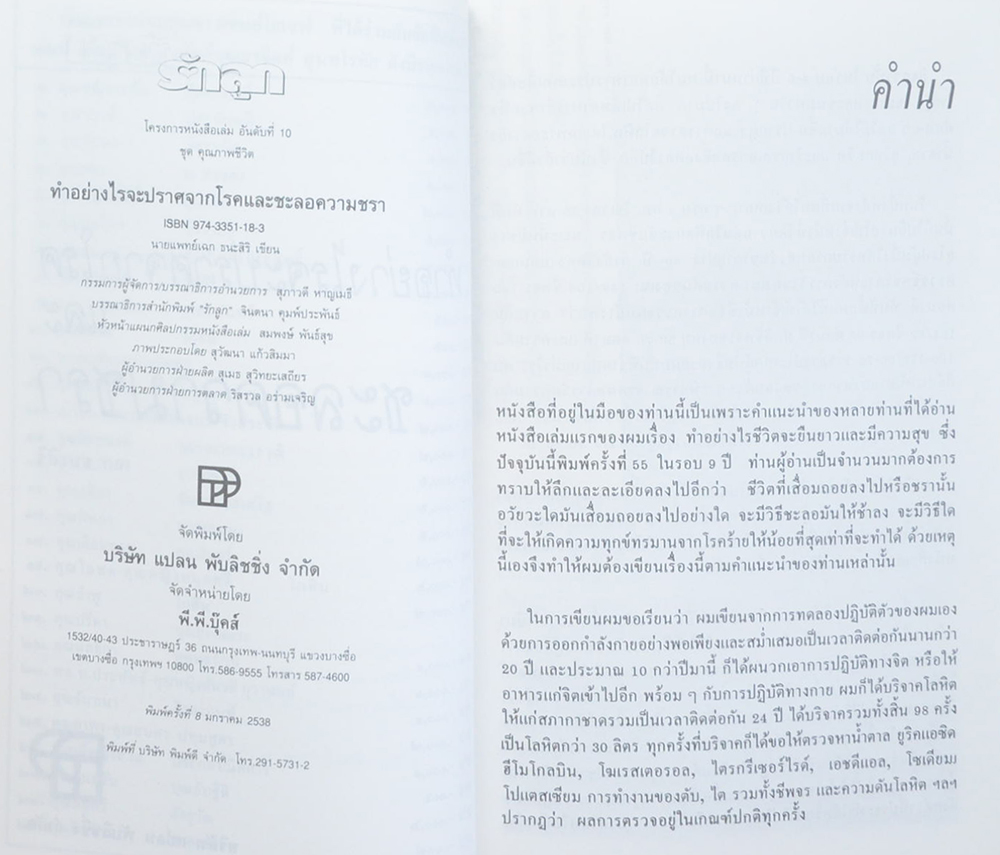 รักลูก
โครงการหนังสือเล่ม อันดับที่ 10
ชุด คุณภาพชีวิต
ทำอย่างไรจะปราศจากโรคและชะลอความชรา
ISBN 974-3351-18-3
นายแพทย์เฉก ธนะสิริ เขียน
กรรมการผู้จัดการ/บรรณาธิการอำนวยการ สุภาวดี หาญเมธี
บรรณาธิการสำนักพิมพ์ "รักลูก" จินตนา คุมพ์ประพันธ์
หัวหน้าแผนกศิลปกรรมหนังสือเล่ม สมพงษ์ พันธ์สุข
ภาพประกอบโดย สุวัฒนา แก้วสิมมา
ผู้อำนวยการฝ่ายผลิต สุเมธ สุวิทยะเสถียร
ผู้อำนวยการฝ่ายการตลาด ริสรวล อร่ามเจริญ
จัดพิมพ์โดย
บริษัท แปลน พับลิชชิ่ง จำกัด
จัดจำหน่ายโดย
พี.พี.บุ๊คส์
1532/40-43 ประชาราษฎร์ 36 ถนนกรุงเทพ-นนทบุรี แขวงบางซื่อ
เขตบางซื่อ กรุงเทพฯ 10800 โทร.586-9555 โทรสาร 587-4600
พิมพ์ครั้งที่ 8 มกราคม 2538
พิมพ์ที่ บริษัท พิมพ์ดี จำกัด โทร.291-5731-2
คำนำ
หนังสือที่อยู่ในมือของท่านนี้เป็นเพราะคำแนะนำของหลายท่านที่ได้อ่าน
หนังสือเล่มแรกของผมเรื่อง ทำอย่างไรชีวิตจะยืนยาวและมีความสุข ซึ่ง
ปัจจุบันนี้พิมพ์ครั้งที่ 55 ในรอบ 9 ปี ท่านผู้อ่านเป็นจำนวนมากต้องการ
ทราบให้ลึกและละเอียดลงไปอีกว่า ชีวิตที่เสื่อมถอยลงไปหรือชรานั้น
อวัยวะใดมันเสื่อมถอยลงไปอย่างใด จะมีวิธีชะลอมันให้ช้าลง จะมีวิธีใด
ที่จะให้เกิดความทุกข์ทรมานจากโรคร้ายให้น้อยที่สุดเท่าที่จะทำได้ ด้วยเหตุ
นี้เองจึงทำให้ผมต้องเขียนเรื่องนี้ตามคำแนะนำของท่านเหล่านั้น
ในการเขียนผมขอเรียนว่า ผมเขียนจากการทดลองปฏิบัติตัวของผมเอง
ด้วยการออกกำลังกายอย่างพอเพียงและสม่ำเสมอเป็นเวลาติดต่อกันนานกว่า
20 ปี และประมาณ 10 กว่าปีมานี้ ก็ได้ผนวกเอาการปฏิบัติทางจิต หรือให้
อาหารแก่จิตเข้าไปอีก พร้อม ๆ กับการปฏิบัติทางกาย ผมก็ได้บริจาคโลหิต
ให้แก่สภากาชาดรวมเป็นเวลาติดต่อกัน 24 ปี ได้บริจาครวมทั้งสิ้น 98 ครั้ง
เป็นโลหิตกว่า 30 ลิตร ทุกครั้งที่บริจาคก็ได้ขอให้ตรวจหาน้ำตาล ยูริคแอซิด
ฮีโมโกลบิน, โฆเรสเตอรอล, ไตรกรีเซอร์ไรด์, เอชดีแอล, โซเดียม,
โปแตสเซียม การทำงานของตับ, ไต รวมทั้งชีพจร และความดันโลหิต ฯลฯ
ปรากฏว่า ผลการตรวจอยู่ในเกณฑ์ปกติทุกครั้ง